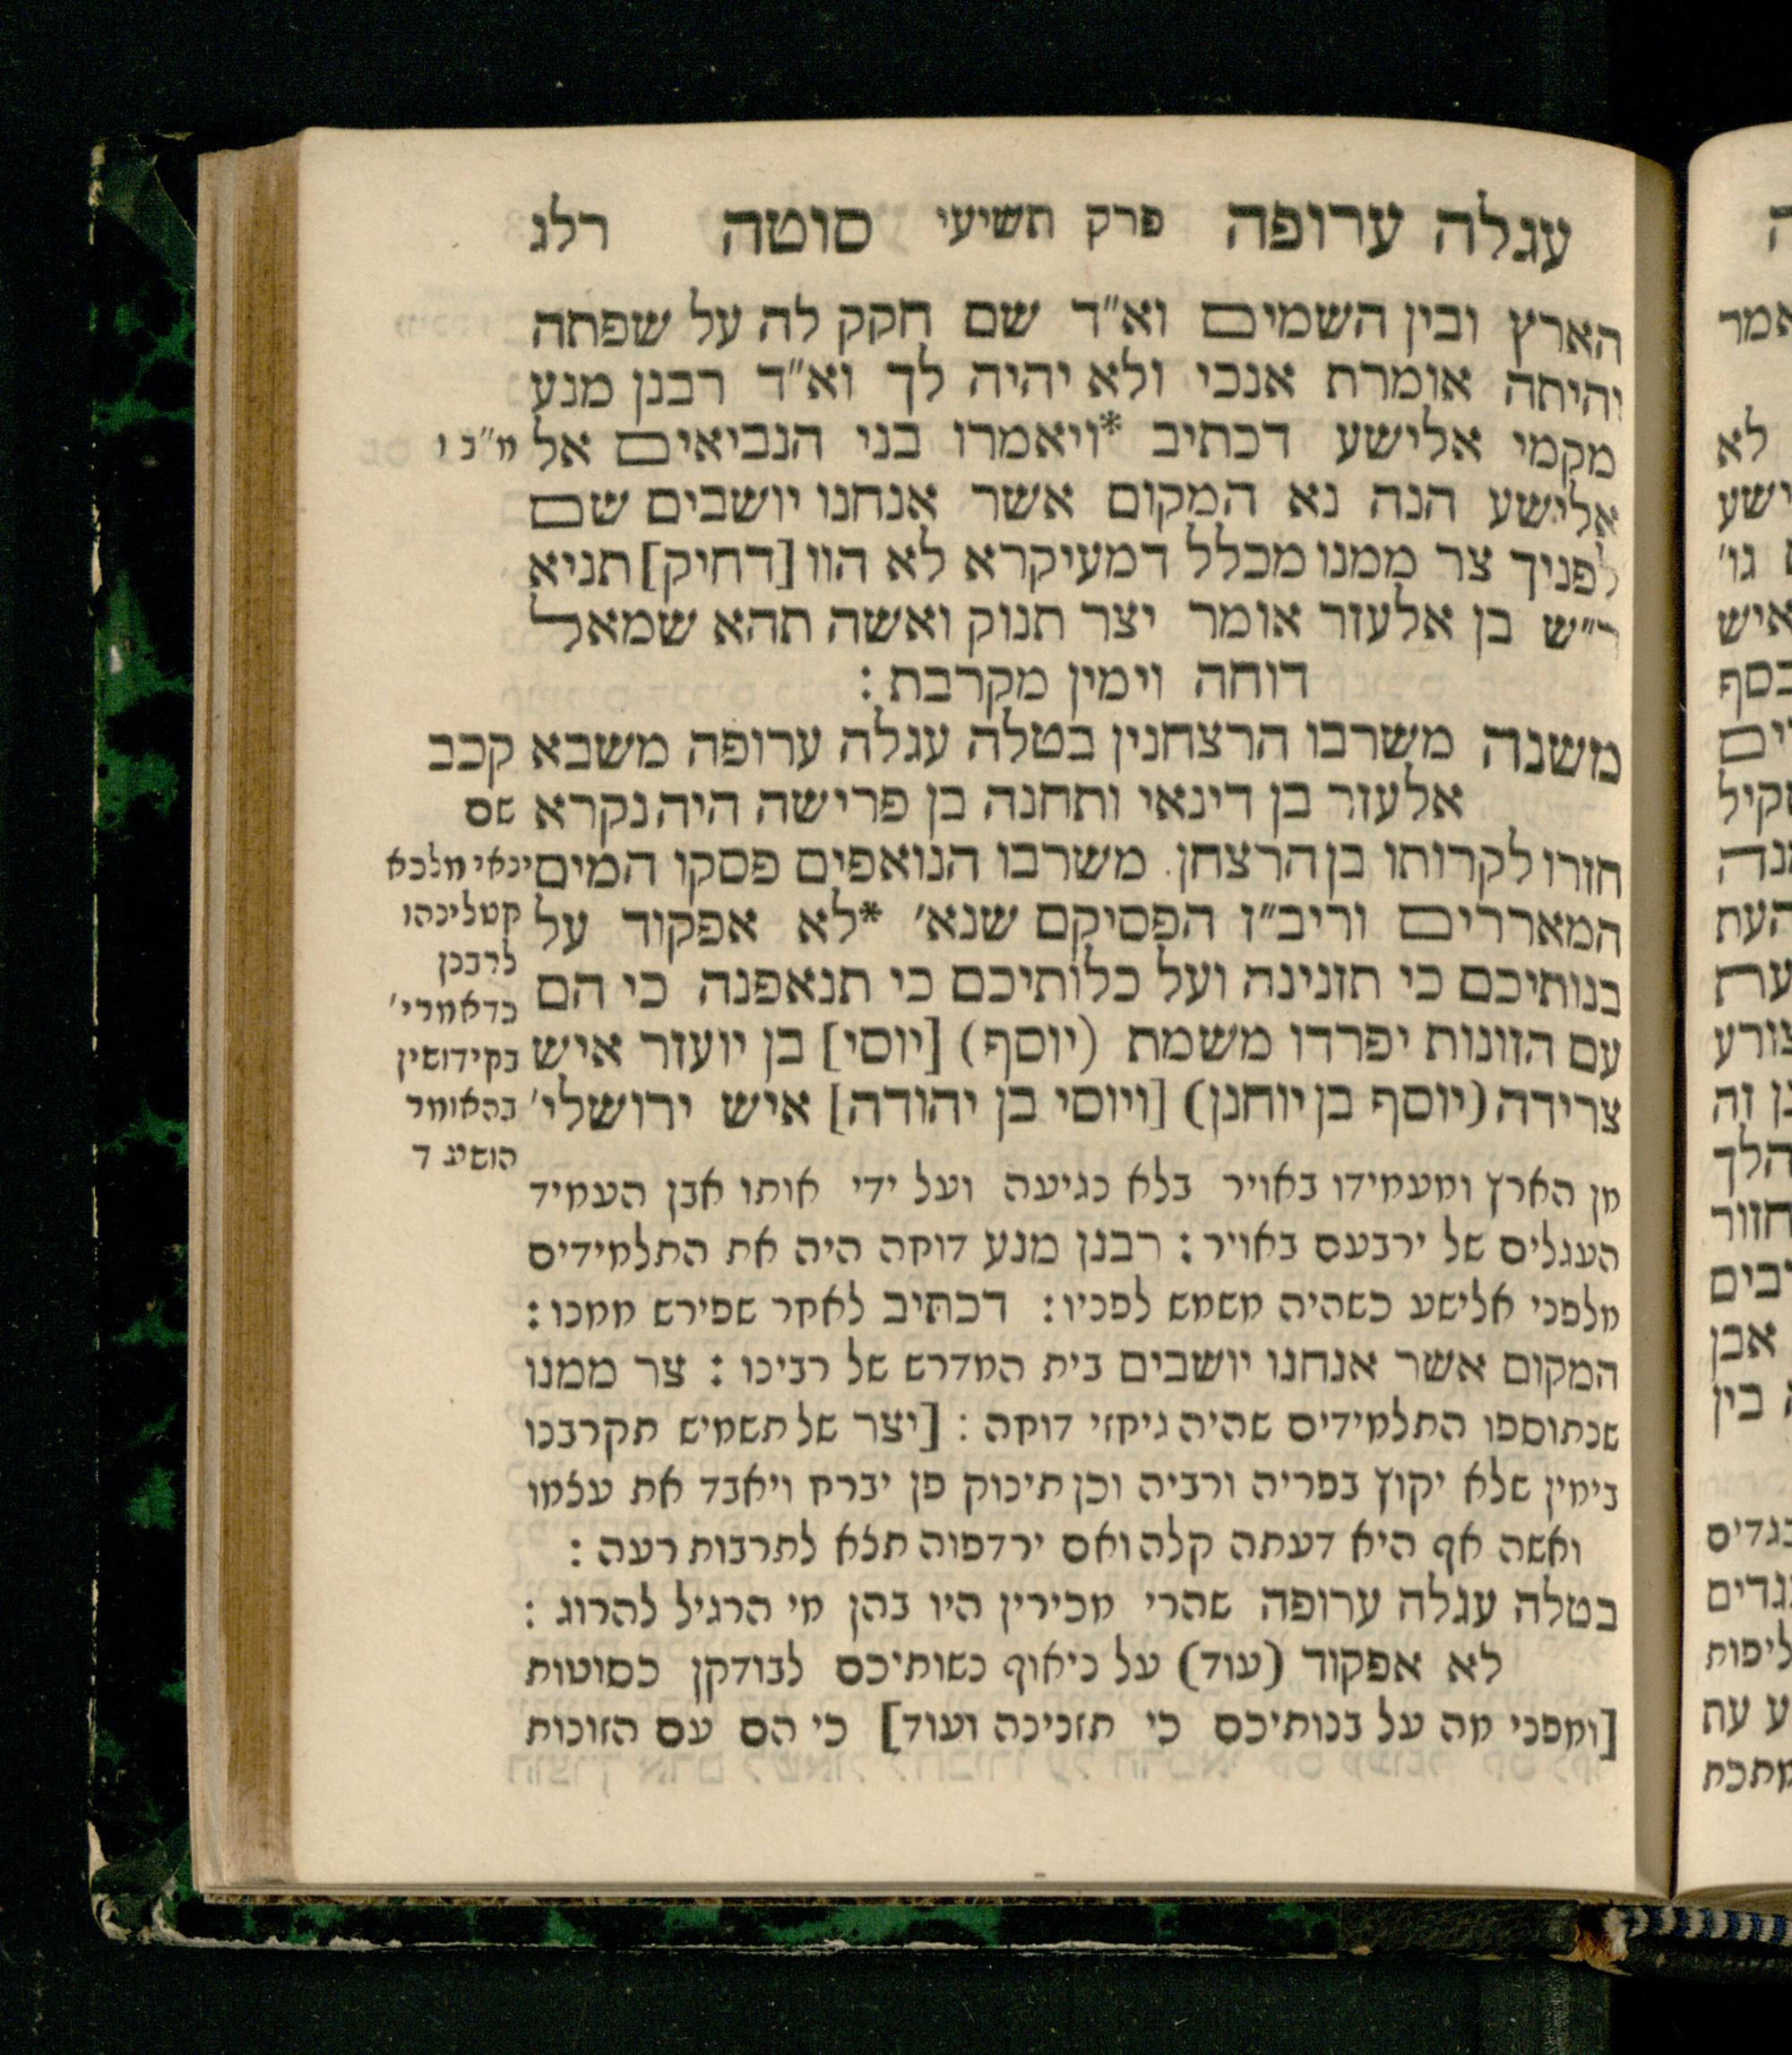 עגלה ערופה פרק תשיעי סוטה רלג
הארץ ובין השמים וא״ד שם חקק לה על שפתה
והיתה אומרת אנכי ולא יהיה לך וא״ד רבנן מנע
מקמי אלישע דכתיב *ויאמרו בני הנביאים אל
אלישע הנה נא המקום אשר אנחנו יושבים שם
לפניך צר ממנו מכלל דמעיקרא לא הוו [דחיק] תניא
ר״ש בן אלעזר אומר יצר תנוק ואשה תהא שמאל
דוחה וימין מקרבת :
משנה משרבו הרצחנין בטלה עגלה ערופה משבא
אלעזר בן דינאי ותחנה בן פרישה היה נקרא
חזרו לקרותו בן הרצחן. משרבו הנואפים פסקו המים
המאררים וריב״ז הפסיקם שנא׳ *לא אפקוד על
בנותיכם כי תזנינה ועל כלותיכם כי תנאפנה כי הם
עם הזונות יפרדו משמת (יוסף) [יוסי] בן יועזר איש
צרידה (יוסף בן יוחנן) [ויוסי בן יהודה] איש ירושלי׳
מ״ב ו
קכב
שם
ינאי מלכא
קטלינהו
לרבנן
כדאמרי׳
בקידושין
בהאומר
הושיע ד
מן הארץ ומעמידו באויר בלא נגיעה ועל ידי אותו אבן העמיד
העגלים של ירבעם באויר : רבנן מנע דוחה היה את התלמידים
מלפני אלישע כשהיה משמש לפניו : דכתיב לאחר שפירש ממנו :
המקום אשר אנחנו יושבים בית המדרש של רבינו : צר ממנו
שנתוספו התלמידים שהיה גיחזי דוחה : [יצר של תשמיש תקרבנו
בימין שלא יקוץ בפריה ורביה וכן תינוק פן יברח ויאבד את עצמו
ואשה אף היא דעתה קלה ואם ירדפוה תצא לתרבות רעה :
בטלה עגלה ערופה שהרי מכירין היו בהן מי הרגיל להרוג :
לא אפקוד (עוד) על ניאוף נשותיכם לבודקן כסוטות
[ומפני מה על בנותיכם כי תזנינה ועוד] כי הם עם הזונות